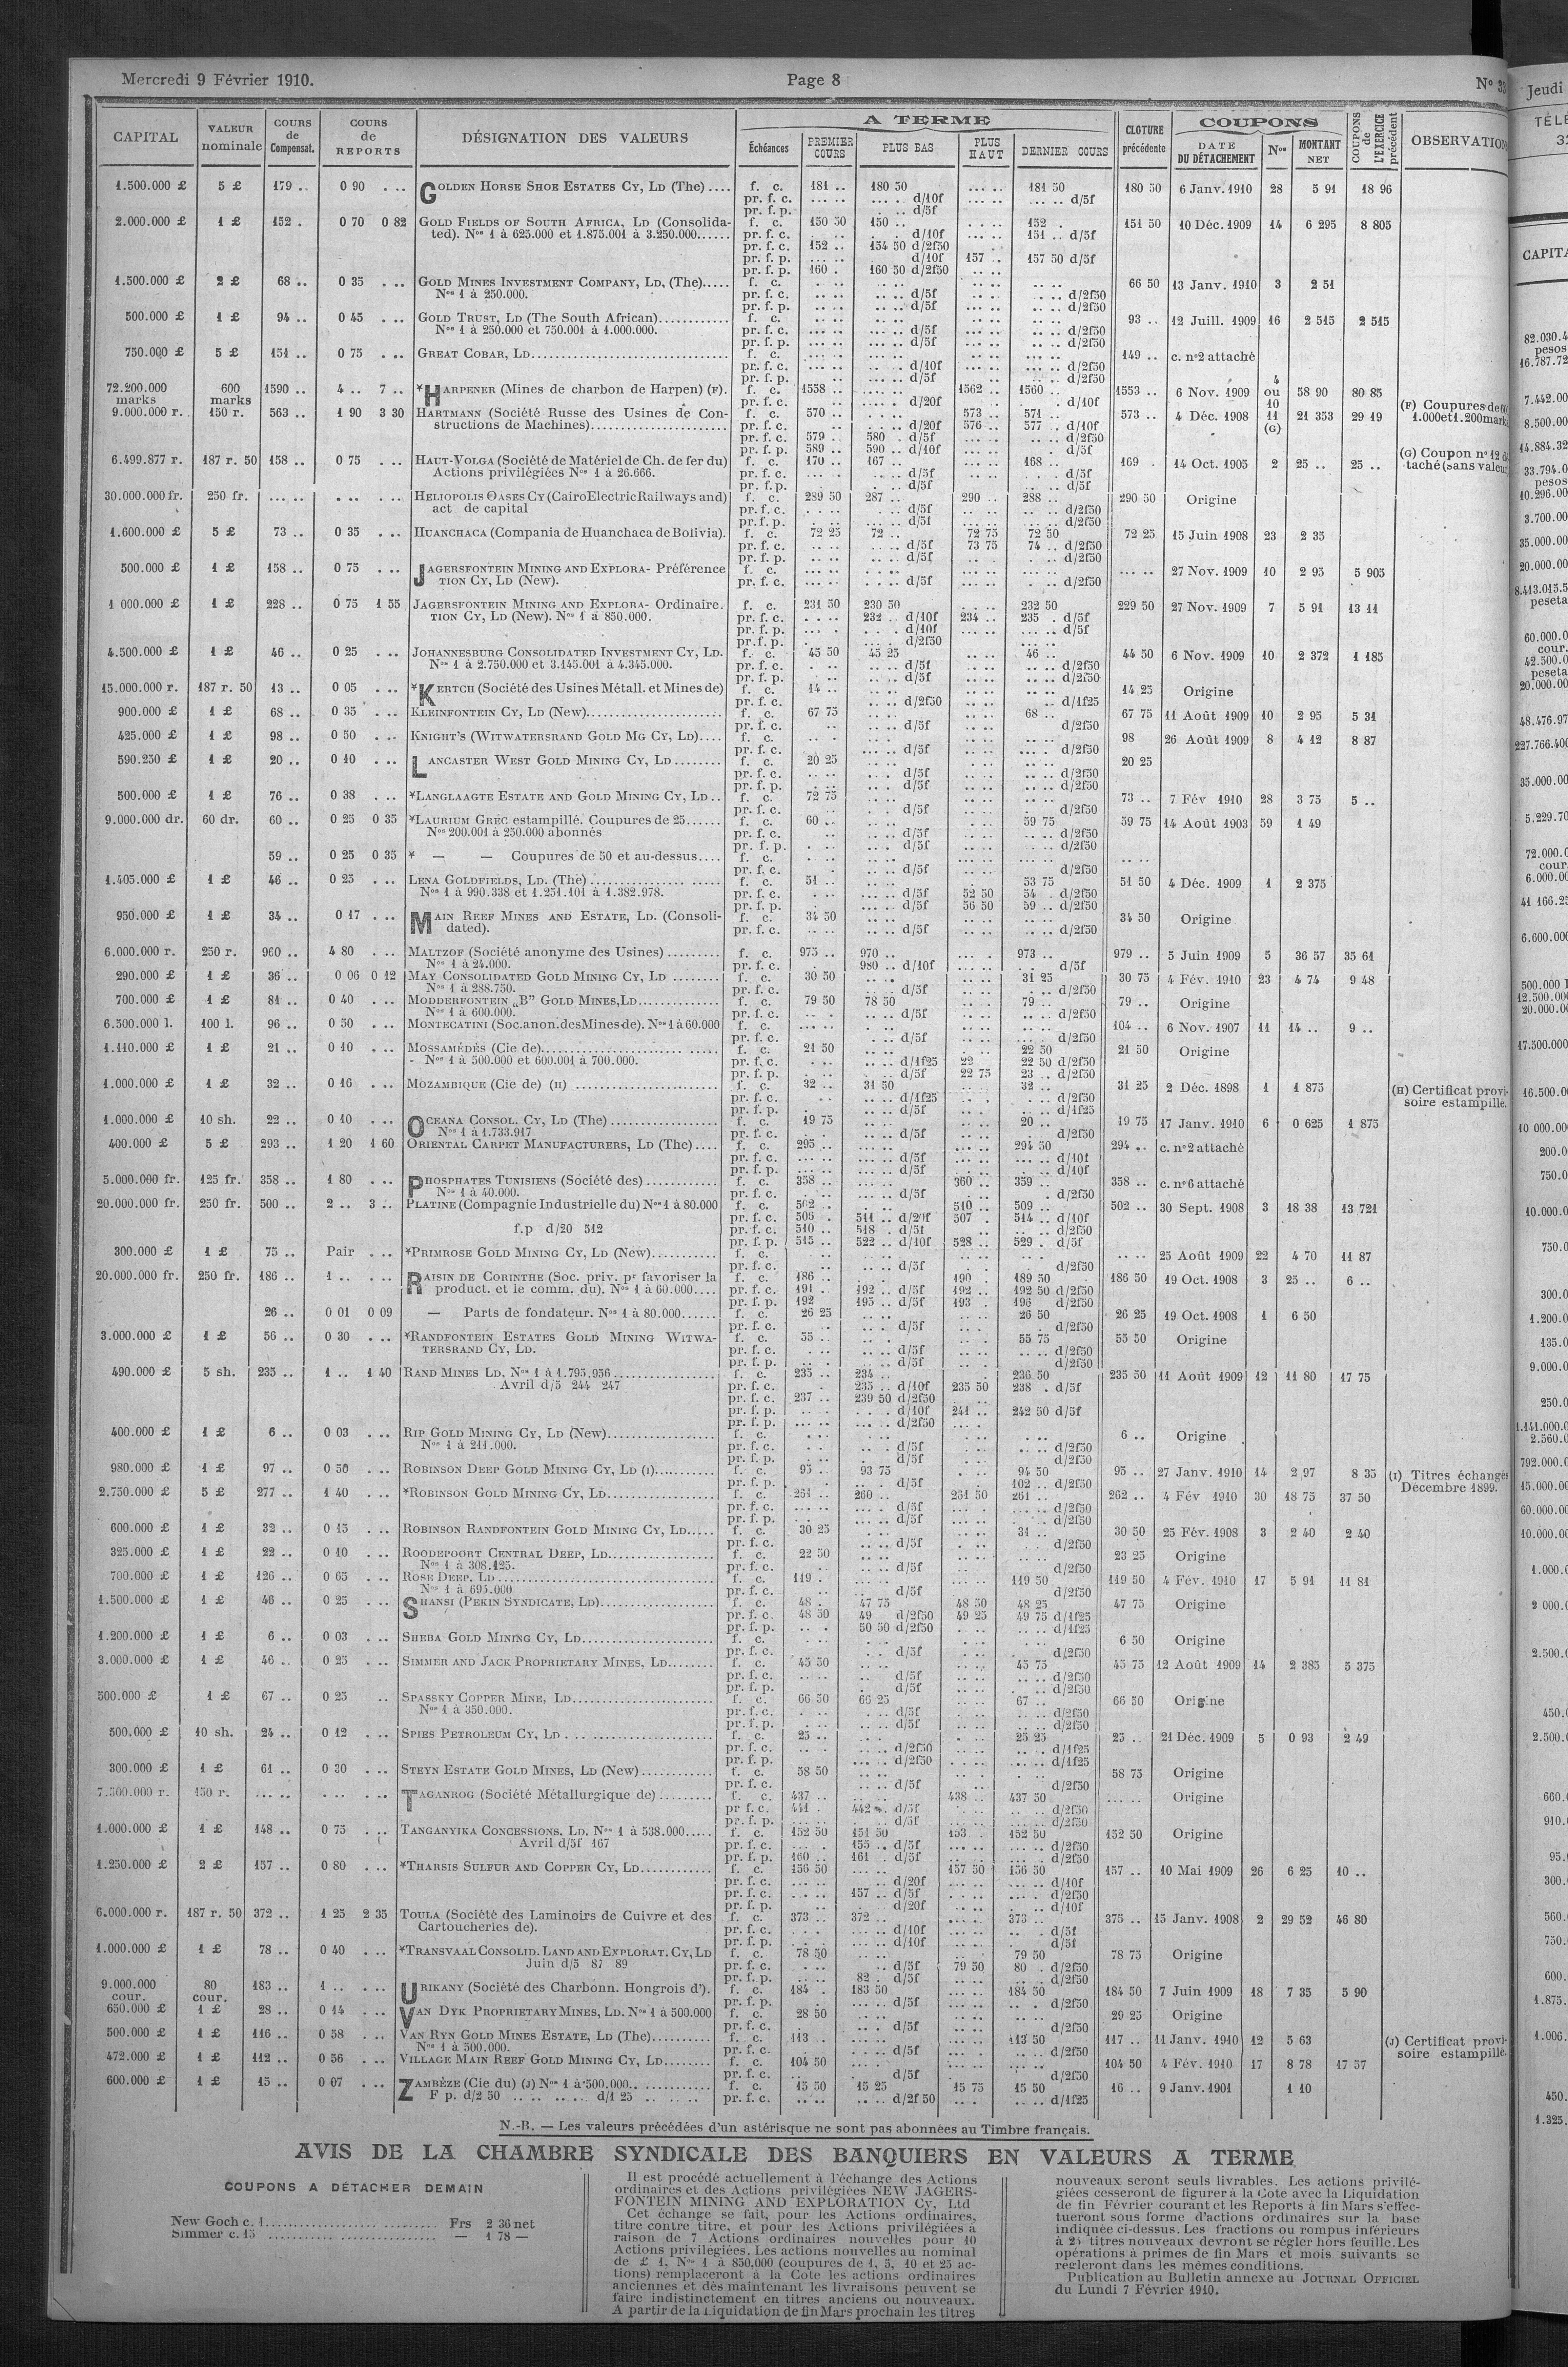 Mercredi 9 Février 1910.
Page 8
N° 33
CAPITAL
VALEUR nominale
COURS de Compensat.
COURS de REPORTS
DÉSIGNATION DES VALEURS
A TERME
Échéances
PREMIER COURS
PLUS BAS
PLUS HAUT
DERNIER COURS
CLOTURE précédente
COUPONS
DATE DU DÉTACHEMENT
Nos
MONTANT NET
COUPONS de L'EXERCICE précédent
1.500.000 £ 5 £ 179 .. 0 90 . .. GOLDEN HORSE SHOE ESTATES CY, LD (The) .... f. c. 181 .. 180 50 ... .. 181 50 180 50 6 Janv. 1910 28 5 91 18 96
pr. f. c. d/10f d/5f
pr. f. p. d/5f
2.000.000 £ 1 £ 152 . 0 70 0 82 GOLD FIELDS OF SOUTH AFRICA, LD (Consolida- f. c. 150 50 150 .. 152 . 151 50 10 Déc. 1909 14 6 295 8 805
ted). Nos 1 à 625.000 et 1.875.001 à 3.250.000...... pr. f. c. d/10f 151 .. d/5f
pr. f. c. 152 .. 154 50 d/2f50
pr. f. p. d/10f 157 .. 157 50 d/5f
pr. f. p. 160 . 160 50 d/2f50
1.500.000 £ 2 £ 68 .. 0 35 . .. GOLD MINES INVESTMENT COMPANY, LD, (The)..... f. c. 66 50 13 Janv. 1910 3 2 51
Nos 1 à 250.000. pr. f. c. d/5f d/2f50
pr. f. p. d/5f d/2f50
500.000 £ 1 £ 94 .. 0 45 . .. GOLD TRUST, LD (The South African)............ f. c. 93 .. 12 Juill. 1909 16 2 515 2 515
Nos 1 à 250.000 et 750.001 à 1.000.000. pr. f. c. d/5f d/2f50
pr. f. p. d/5f d/2f50
750.000 £ 5 £ 151 .. 0 75 . .. GREAT COBAR, LD................ f. c. 149 .. c. n°2 attaché
pr. f. c. d/10f d/2f50
pr. f. p. d/5f d/2f50
72.200.000 marks 600 marks 1590 .. 4 .. 7 .. *HARPENER (Mines de charbon de Harpen) (F). f. c. 1558 .. 1562 .. 1560 .. 1553 .. 6 Nov. 1909 4 ou 10 58 90 80 85
pr. f. c. d/20f d/10f
9.000.000 r. 150 r. 563 .. 1 90 3 30 HARTMANN (Société Russe des Usines de Con- f. c. 570 .. 573 .. 571 .. 573 .. 4 Déc. 1908 11 (G) 21 353 29 19
structions de Machines)........ pr. f. c. d/20f 576 .. 577 . d/10f
pr. f. c. 579 .. 580 . d/5f d/2f50
pr. f. p. 589 .. 590 .. d/10f d/5f
(F) Coupures de
1.000 et 1.200 mark
6.499.877 r. 187 r. 50 158 .. 0 75 . .. HAUT-VOLGA (Société de Matériel de Ch. de fer du) f. c. 170 .. 167 .. 168 .. 169 . 14 Oct. 1905 2 25 .. 25 ..
Actions privilégiées Nos 1 à 26.666. pr. f. c. d/5f d/5f
pr. f. p. d/5f d/5f
(G) Coupon n° 12
taché (sans valeur
30.000.000 fr. 250 fr. HELIOPOLIS OASES CY (Cairo Electric Railways and) f. c. 289 50 287 .. 290 .. 288 .. 290 50 Origine
act de capital pr. f. c. d/5f d/2f50
pr. f. p. d/5f d/2f50
1.600.000 £ 5 £ 73 .. 0 35 . .. HUANCHACA (Compania de Huanchaca de Bolivia). f. c. 72 25 72 .. 72 75 72 50 72 25 15 Juin 1908 23 2 35
pr. f. c. d/5f 73 75 74 .. d/2f50
pr. f. p. d/5f d/2f50
500.000 £ 1 £ 158 .. 0 75 . .. JAGERSFONTEIN MINING AND EXPLORA- Préférence f. c. 27 Nov. 1909 10 2 95 5 905
TION CY, LD (New). pr. f. c. d/5f d/2f50
1 000.000 £ 1 £ 228 .. 0 75 1 55 JAGERSFONTEIN MINING AND EXPLORA- Ordinaire. f. c. 231 50 230 50 232 50 229 50 27 Nov. 1909 7 5 91 13 11
TION CY, LD (New). Nos 1 à 850.000. pr. f. c. 232 .. d/10f 234 .. 235 . d/5f
pr. f. p. d/10f d/5f
pr. f. p. d/2f50
4.500.000 £ 1 £ 46 .. 0 25 . .. JOHANNESBURG CONSOLIDATED INVESTMENT CY, LD. f. c. 45 50 45 25 46 .. 44 50 6 Nov. 1909 10 2 372 1 185
Nos 1 à 2.750.000 et 3.145.001 à 4.345.000. pr. f. c. d/5f d/2f50
pr. f. p. d/5f d/2f50
15.000.000 r. 187 r. 50 13 .. 0 05 . .. *KERTCH (Société des Usines Métall. et Mines de) f. c. 14 .. 14 25 Origine
pr. f. c. d/2f50 d/1f25
900.000 £ 1 £ 68 .. 0 35 . .. KLEINFONTEIN CY, LD (New)........ f. c. 67 75 68 .. 67 75 11 Août 1909 10 2 95 5 31
pr. f. c. d/5f d/2f50
425.000 £ 1 £ 98 .. 0 50 . .. KNIGHT'S (WITWATERSRAND GOLD MG CY, LD).... f. c. 98 26 Août 1909 8 4 12 8 87
pr. f. c. d/5f d/2f50
590.250 £ 1 £ 20 .. 0 10 . .. LANCASTER WEST GOLD MINING CY, LD ........ f. c. 20 25 20 25
pr. f. c. d/5f d/2f50
pr. f. p. d/5f d/2f50
500.000 £ 1 £ 76 .. 0 38 . .. *LANGLAAGTE ESTATE AND GOLD MINING CY, LD .. f. c. 72 75 73 .. 7 Fév 1910 28 3 75 5 ..
pr. f. c. d/5f d/2f50
9.000.000 dr. 60 dr. 60 .. 0 25 0 35 *LAURIUM GREC estampillé. Coupures de 25...... f. c. 60 .. 59 75 59 75 14 Août 1903 59 1 49
Nos 200.001 à 250.000 abonnés pr. f. c. d/5f d/2f50
pr. f. p. d/5f d/2f50
59 .. 0 25 0 35 * — — Coupures de 50 et au-dessus.... f. c.
pr. f. c. d/5f d/2f50
1.405.000 £ 1 £ 46 .. 0 25 . .. LENA GOLDFIELDS, LD. (The) ........ f. c. 51 .. 53 75 51 50 4 Déc. 1909 1 2 375
Nos 1 à 990.338 et 1.251.101 à 1.382.978. pr. f. c. d/5f 52 50 54 .. d/2f50
pr. f. p. d/5f 56 50 59 .. d/2f50
950.000 £ 1 £ 34 .. 0 17 . .. MAIN REEF MINES AND ESTATE, LD. (Consoli- f. c. 34 50 34 50 Origine
dated). pr. f. c. d/5f d/2f50
6.000.000 r. 250 r. 960 .. 4 80 . .. MALTZOF (Société anonyme des Usines) ......... f. c. 975 .. 970 .. 973 .. 979 .. 5 Juin 1909 5 36 57 35 61
Nos 1 à 24.000. pr. f. c. 980 .. d/10f d/5f
290.000 £ 1 £ 36 .. 0 06 0 12 MAY CONSOLIDATED GOLD MINING CY, LD ........ f. c. 30 50 31 25 30 75 4 Fév. 1910 23 4 74 9 48
Nos 1 à 288.750. pr. f. c. d/5f d/2f50
700.000 £ 1 £ 81 .. 0 40 . .. MODDERFONTEIN „B" GOLD MINES, LD.............. f. c. 79 50 78 50 79 .. 79 .. Origine
Nos 1 à 600.000. pr. f. c. d/5f d/2f50
6.500.000 l. 100 l. 96 .. 0 50 . .. MONTECATINI (Soc. anon. des Mines de). Nos 1 à 60.000 f. c. 104 .. 6 Nov. 1907 11 14 .. 9 ..
pr. f. c. d/5f d/2f50
1.110.000 £ 1 £ 21 .. 0 10 . .. MOSSAMÉDÈS (Cie de)............ f. c. 21 50 22 50 21 50 Origine
- Nos 1 à 500.000 et 600.001 à 700.000. pr. f. c. d/1f25 22 22 50 d/2f50
pr. f. p. d/5f 22 75 23 .. d/2f50
1.000.000 £ 1 £ 32 .. 0 16 . .. MOZAMBIQUE (Cie de) (H) ........ f. c. 32 .. 31 50 32 .. 31 25 2 Déc. 1898 1 1 875
(H) Certificat provi-
soire estampillé.
pr. f. c. d/1f25 d/2f50
pr. f. p. d/5f d/1f25
1.000.000 £ 10 sh. 22 .. 0 10 . .. OCEANA CONSOL. CY, LD (The) ........ f. c. 19 75 20 .. 19 75 17 Janv. 1910 6 0 625 1 875
Nos 1 à 1.733.917 pr. f. c. d/5f d/2f50
400.000 £ 5 £ 293 .. 1 20 1 60 ORIENTAL CARPET MANUFACTURERS, LD (The).... f. c. 295 .. 294 50 294 .. c. n°2 attaché
pr. f. c. d/5f d/10f
pr. f. p. d/5f d/10f
5.000.000 fr. 125 fr. 358 .. 1 80 . .. PHOSPHATES TUNISIENS (Société des) ............ f. c. 358 .. 360 .. 359 .. 358 .. c. n°6 attaché
Nos 1 à 40.000. pr. f. c. d/5f d/2f50
20.000.000 fr. 250 fr. 500 .. 2 .. 3 .. PLATINE (Compagnie Industrielle du) Nos 1 à 80.000 f. c. 502 . 510 .. 509 .. 502 .. 30 Sept. 1908 3 18 38 13 721
pr. f. c. 506 . 511 .. d/20f 507 . 514 .. d/10f
f.p d/20 512 pr. f. c. 510 .. 518 . d/5f d/2f50
pr. f. p. 515 .. 522 .. d/10f 528 .. 529 . d/5f
300.000 £ 1 £ 75 .. Pair . .. *PRIMROSE GOLD MINING CY, LD (New)........... f. c. 25 Août 1909 22 4 70 11 87
pr. f. c. d/5f d/2f50
20.000.000 fr. 250 fr. 186 .. 1 .. . .. RAISIN DE CORINTHE (Soc. priv. pr favoriser la f. c. 186 .. 190 .. 189 50 186 50 19 Oct. 1908 3 25 .. 6 ..
product. et le comm. du). Nos 1 à 60.000.... pr. f. c. 191 .. 192 .. d/5f 192 .. 192 50 d/2f50
pr. f. p. 192 195 .. d/5f 193 . 196 d/2f50
26 .. 0 01 0 09 — Parts de fondateur. Nos 1 à 80.000...... f. c. 26 25 26 50 26 25 19 Oct. 1908 1 6 50
pr. f. c. d/5f d/2f50
3.000.000 £ 1 £ 56 .. 0 30 . .. *RANDFONTEIN ESTATES GOLD MINING WITWA- f. c. 55 .. 55 75 55 50 Origine
TERSRAND CY, LD. pr. f. c. d/5f d/2f50
pr. f. p. d/5f d/2f50
490.000 £ 5 sh. 235 .. 1 .. 1 40 RAND MINES LD. Nos 1 à 1.795.956 ........ f. c. 235 .. 234 .. 236 50 235 50 11 Août 1909 12 11 80 17 75
Avril d/5 244 247 pr. f. c. 235 .. d/10f 235 50 238 . d/5f
pr. f. c. 237 .. 239 50 d/2f50
pr. f. p. d/10f 241 .. 242 50 d/5f
pr. f. p. d/2f50
400.000 £ 1 £ 6 .. 0 03 . .. RIP GOLD MINING CY, LD (New)........ f. c. 6 .. Origine
Nos 1 à 211.000. pr. f. c. d/5f d/2f50
pr. f. p. d/5f d/2f50
980.000 £ 1 £ 97 .. 0 50 . .. ROBINSON DEEP GOLD MINING CY, LD (I).......... f. c. 95 .. 93 75 94 50 95 .. 27 Janv. 1910 14 2 97 8 35
(I) Titres échangés
Décembre 1899.
pr. f. p. d/5f 102 .. d/2f50
2.750.000 £ 5 £ 277 .. 1 40 *ROBINSON GOLD MINING CY, LD........ f. c. 261 .. 260 .. 261 50 261 .. 262 .. 4 Fév 1910 30 18 75 37 50
pr. f. c. d/5f d/2f50
pr. f. p. d/5f d/2f50
600.000 £ 1 £ 32 .. 0 15 . .. ROBINSON RANDFONTEIN GOLD MINING CY, LD..... f. c. 30 25 31 .. 30 50 25 Fév. 1908 3 2 40 2 40
pr. f. c. d/5f d/2f50
325.000 £ 1 £ 22 .. 0 10 . .. ROODEPOORT CENTRAL DEEP, LD........ f. c. 22 50 23 25 Origine
Nos 1 à 308.125. pr. f. c. d/5f d/2f50
700.000 £ 1 £ 126 .. 0 65 . .. ROSE DEEP. LD ........ f. c. 119 . 119 50 119 50 4 Fév. 1910 17 5 91 11 81
Nos 1 à 695.000 pr. f. c. d/5f d/2f50
1.500.000 £ 1 £ 46 .. 0 25 . .. SHANSI (PEKIN SYNDICATE, LD)........ f. c. 48 . 47 75 48 50 48 25 47 75 Origine
pr. f. c. 48 50 49 d/2f50 49 25 49 75 d/1f25
pr. f. p. 50 50 d/2f50 d/1f25
1.200.000 £ 1 £ 6 .. 0 03 . .. SHEBA GOLD MINING CY, LD........ f. c. 6 50 Origine
pr. f. c. d/5f d/2f50
3.000.000 £ 1 £ 46 .. 0 25 . .. SIMMER AND JACK PROPRIETARY MINES, LD........ f. c. 45 50 45 75 45 75 12 Août 1909 14 2 385 5 375
pr. f. c. d/5f d/2f50
pr. f. p. d/5f d/2f50
500.000 £ 1 £ 67 .. 0 25 .. SPASSKY COPPER MINE, LD........ f. c. 66 50 66 25 67 .. 66 50 Origine
Nos 1 à 350.000. pr. f. c. d/5f d/2f50
pr. f. p. d/5f d/2f50
500.000 £ 10 sh. 24 .. 0 12 . .. SPIES PETROLEUM CY, LD ........ f. c. 25 .. 25 25 25 .. 21 Déc. 1909 5 0 93 2 49
pr. f. c. d/2f50 d/1f25
pr. f. p. d/2f50 d/1f25
300.000 £ 1 £ 61 .. 0 30 . .. STEYN ESTATE GOLD MINES, LD (New) ............ f. c. 58 50 58 75 Origine
pr. f. c. d/5f d/2f50
7.500.000 r. 150 r. TAGANROG (Société Métallurgique de) ......... f. c. 437 .. 438 .. 437 50 Origine
pr f. c. 441 . 442 . d/5f d/2f50
pr. f. p. d/5f d/2f50
1.000.000 £ 1 £ 148 .. 0 75 . .. TANGANYIKA CONCESSIONS. LD. Nos 1 à 538.000..... f. c. 152 50 151 50 153 . 152 50 152 50 Origine
Avril d/5f 167 pr. f. c. 155 .. d/5f d/2f50
pr. f. p. 160 .. 161 . d/5f d/2f50
1.250.000 £ 2 £ 157 .. 0 80 . .. *THARSIS SULFUR AND COPPER CY, LD............ f. c. 156 50 157 50 156 50 157 .. 10 Mai 1909 26 6 25 10 ..
pr. f. c. d/20f d/10f
pr. f. c. 157 .. d/5f d/2f50
pr. f. p. d/20f d/10f
6.000.000 r. 187 r. 50 372 .. 1 25 2 35 TOULA (Société des Laminoirs de Cuivre et des f. c. 373 .. 372 .. 373 .. 375 .. 15 Janv. 1908 2 29 52 46 80
Cartoucheries de). pr. f. c. d/10f d/5f
pr. f. p. d/10f d/5f
1.000.000 £ 1 £ 78 .. 0 40 . .. *TRANSVAAL CONSOLID. LAND AND EXPLORAT. CY, LD f. c. 78 50 79 50 78 75 Origine
Juin d/5 87 89 pr. f. c. d/5f 79 50 80 . d/2f50
pr. f. p. 82 . d/5f d/2f50
9.000.000 cour. 80 cour. 183 .. 1 .. . .. URIKANY (Société des Charbonn. Hongrois d'). f. c. 184 . 183 50 184 50 184 50 7 Juin 1909 18 7 35 5 90
pr. f. p. d/5f d/2f50
650.000 £ 1 £ 28 .. 0 14 . .. VAN DYK PROPRIETARY MINES, LD. Nos 1 à 500.000 f. c. 28 50 29 25 Origine
pr. f. c. d/5f d/2f50
500.000 £ 1 £ 116 .. 0 58 . .. VAN RYN GOLD MINES ESTATE, LD (The).......... f. c. 113 . 113 50 117 .. 11 Janv. 1910 12 5 63
(J) Certificat provi-
soire estampillé.
Nos 1 à 500.000. pr. f. c. d/5f d/2f50
472.000 £ 1 £ 112 .. 0 56 . .. VILLAGE MAIN REEF GOLD MINING CY, LD........ f. c. 104 50 104 50 4 Fév. 1910 17 8 78 17 57
pr. f. c. d/5f d/2f50
600.000 £ 1 £ 15 .. 0 07 . .. ZAMBÈZE (Cie du) (J) Nos 1 à 500.000.............. f. c. 15 50 15 25 15 75 15 50 16 .. 9 Janv. 1901 1 10
F p. d/2 50 .. .. .. .. d/1 25 .. .. .. pr. f. c. d/2f 50 d/1f25
N.-B. — Les valeurs précédées d'un astérisque ne sont pas abonnées au Timbre français.
AVIS DE LA CHAMBRE SYNDICALE DES BANQUIERS EN VALEURS A TERME
COUPONS A DÉTACHER DEMAIN
New Goch c. 1........................ Frs 2 36 net
Simmer c. 15 ........................ — 1 78 —
Il est procédé actuellement à l'échange des Actions
ordinaires et des Actions privilégiées NEW JAGERS-
FONTEIN MINING AND EXPLORATION Cy, Ltd
Cet échange se fait, pour les Actions ordinaires,
titre contre titre, et pour les Actions privilégiées à
raison de 7 Actions ordinaires nouvelles pour 10
Actions privilégiées. Les actions nouvelles au nominal
de £ 1, Nos 1 à 850,000 (coupures de 1, 5, 10 et 25 ac-
tions) remplaceront à la Cote les actions ordinaires
anciennes et dès maintenant les livraisons peuvent se
faire indistinctement en titres anciens ou nouveaux.
A partir de la Liquidation de fin Mars prochain les titres
nouveaux seront seuls livrables. Les actions privilé-
giées cesseront de figurer à la Cote avec la Liquidation
de fin Février courant et les Reports à fin Mars s'effec-
tueront sous forme d'actions ordinaires sur la base
indiquée ci-dessus. Les fractions ou rompus inférieurs
à 25 titres nouveaux devront se régler hors feuille. Les
opérations à primes de fin Mars et mois suivants se
régleront dans les mêmes conditions.
Publication au Bulletin annexe au JOURNAL OFFICIEL
du Lundi 7 Février 1910.
Jeudi